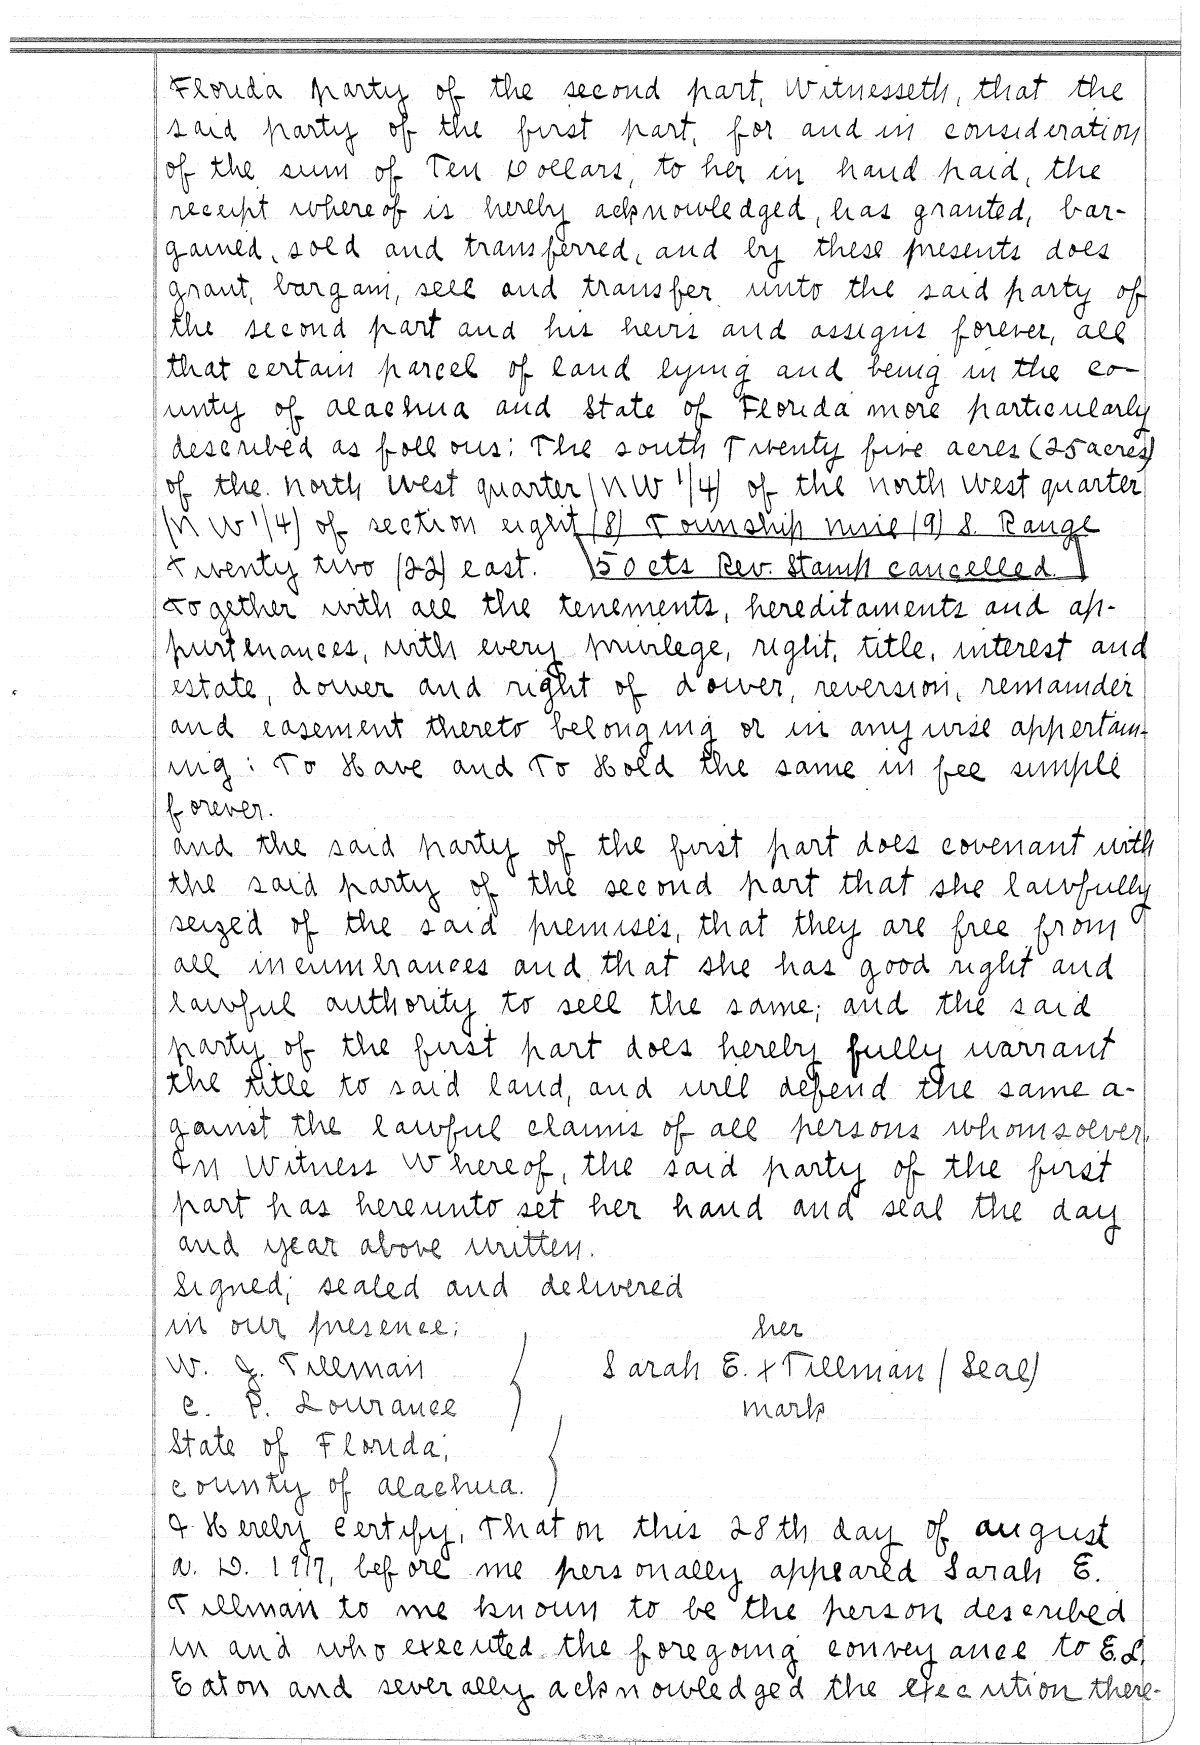 Florida party of the second part, Witnesseth, that the
said party of the first part, for and in consideration
of the sum of Ten Dollars, to her in hand paid, the
receipt whereof is hereby acknowledged, has granted, bar-
gained, sold and transferred, and by these presents does
grant, bargain, sell and transfer unto the said party of
the second part and his heirs and assigns forever, all
that certain parcel of land lying and being in the co-
unty of Alachua and State of Florida more particularly
described as follows: The south Twenty five acres (25 acres)
of the north west quarter (NW 1/4) of the north west quarter
(NW 1/4) of section eight (8) Township nine (9) S. Range
Twenty two (22) east. (50 cts Rev. Stamp cancelled.)
Together with all the tenements, hereditaments and ap-
purtenances, with every privilege, right, title, interest and
estate, dower and right of dower, reversion, remainder
and easement thereto belonging or in anywise appertain-
ing: To Have and To Hold the same in fee simple
forever.
And the said party of the first part does covenant with
the said party of the second part that she lawfully
seized of the said premises, that they are free from
all incumbrances and that she has good right and
lawful authority to sell the same; and the said
party of the first part does hereby fully warrant
the title to said land, and will defend the same a-
gainst the lawful claims of all persons whomsoever.
In Witness Whereof, the said party of the first
part has hereunto set her hand and seal the day
and year above written.
Signed, sealed and delivered
in our presence: her
W. J. Tillman Sarah E. x Tillman (Seal)
C. P. Lourance mark
State of Florida,
County of Alachua.
I Hereby Certify, That on this 28th day of August
A. D. 1917, before me personally appeared Sarah E.
Tillman to me known to be the person described
in and who executed the foregoing conveyance to E. L.
Eaton and severally acknowledged the execution there-